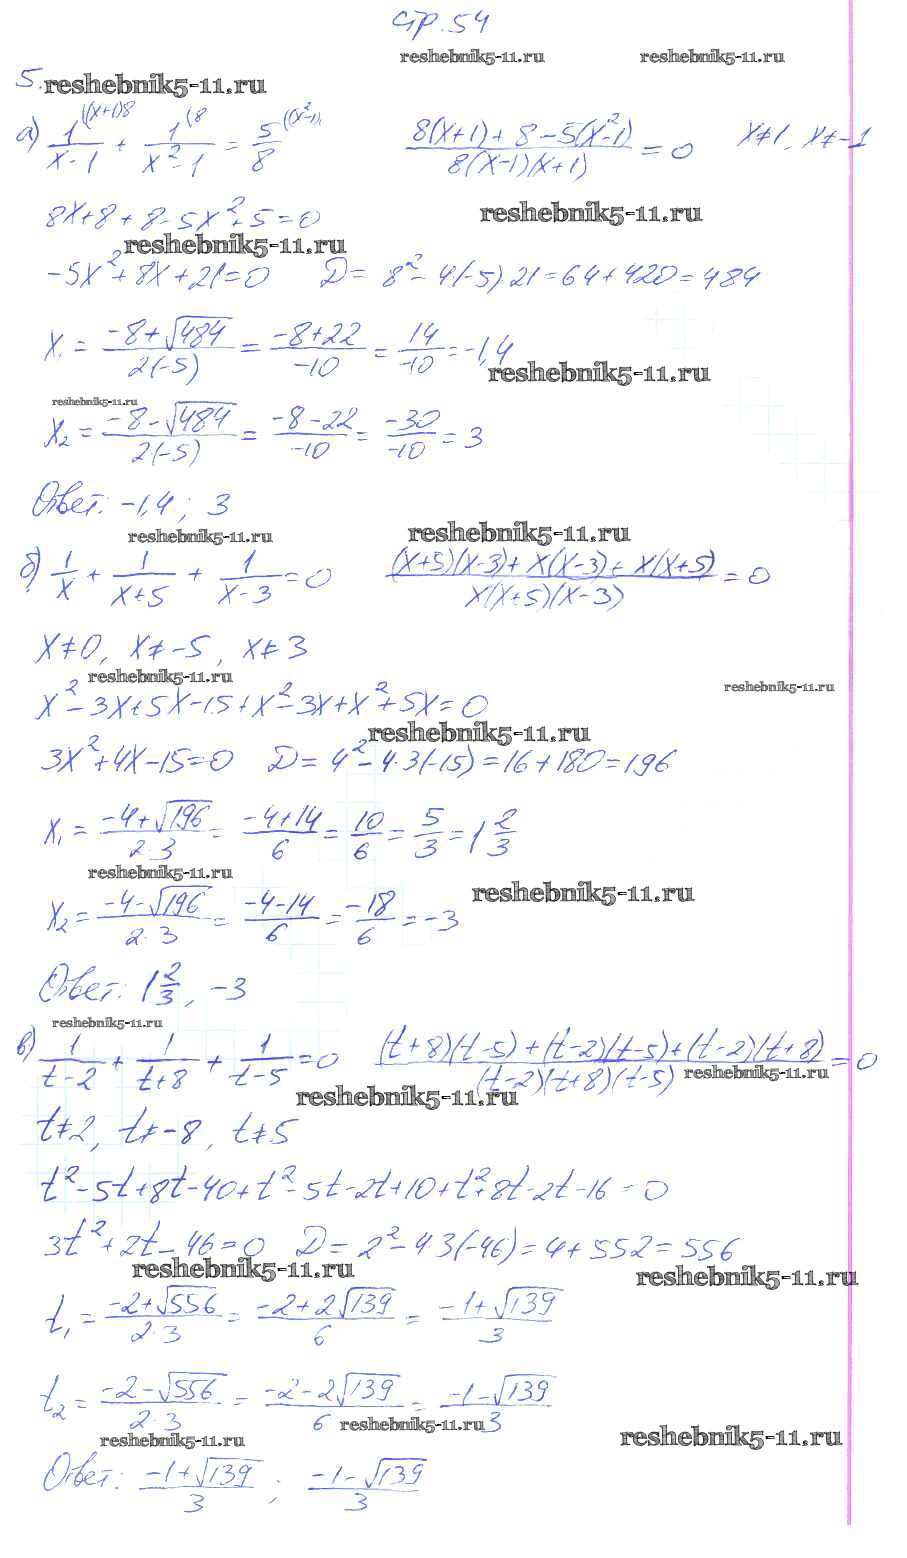 стр. 54
reshebnik5-11.ru reshebnik5-11.ru
5. reshebnik5-11.ru
а) 1/(x-1) ((x+1)8 + 1/(x²-1) (8 = 5/8 ((x²-1) (8(x+1)+8-5(x²-1))/(8(x-1)(x+1)) = 0 x≠1, x≠-1
8x+8+8-5x²+5=0 reshebnik5-11.ru
reshebnik5-11.ru
-5x²+8x+21=0 D= 8²-4·(-5)·21=64+420=484
x₁ = (-8+√484)/(2·(-5)) = (-8+22)/(-10) = 14/(-10) = -1,4
reshebnik5-11.ru
reshebnik5-11.ru
x₂ = (-8-√484)/(2·(-5)) = (-8-22)/(-10) = (-30)/(-10) = 3
Ответ: -1,4; 3
reshebnik5-11.ru reshebnik5-11.ru
б) 1/x + 1/(x+5) + 1/(x-3) = 0 ((x+5)(x-3)+x(x-3)+x(x+5))/(x(x+5)(x-3)) = 0
x≠0, x≠-5, x≠3
reshebnik5-11.ru reshebnik5-11.ru
x²-3x+5x-15+x²-3x+x²+5x=0
reshebnik5-11.ru
3x²+4x-15=0 D= 4²-4·3·(-15)=16+180=196
x₁ = (-4+√196)/(2·3) = (-4+14)/6 = 10/6 = 5/3 = 1 2/3
reshebnik5-11.ru reshebnik5-11.ru
x₂ = (-4-√196)/(2·3) = (-4-14)/6 = -18/6 = -3
Ответ: 1 2/3, -3
reshebnik5-11.ru
в) 1/(t-2) + 1/(t+8) + 1/(t-5) = 0 ((t+8)(t-5)+(t-2)(t-5)+(t-2)(t+8))/((t-2)(t+8)(t-5)) = 0
reshebnik5-11.ru
reshebnik5-11.ru
t≠2, t≠-8, t≠5
t²-5t+8t-40+t²-5t-2t+10+t²+8t-2t-16=0
3t²+2t-46=0 D= 2²-4·3·(-46)=4+552=556
reshebnik5-11.ru reshebnik5-11.ru
t₁ = (-2+√556)/(2·3) = (-2+2√139)/6 = (-1+√139)/3
t₂ = (-2-√556)/(2·3) = (-2-2√139)/6 = (-1-√139)/3
reshebnik5-11.ru reshebnik5-11.ru reshebnik5-11.ru
Ответ: (-1+√139)/3; (-1-√139)/3